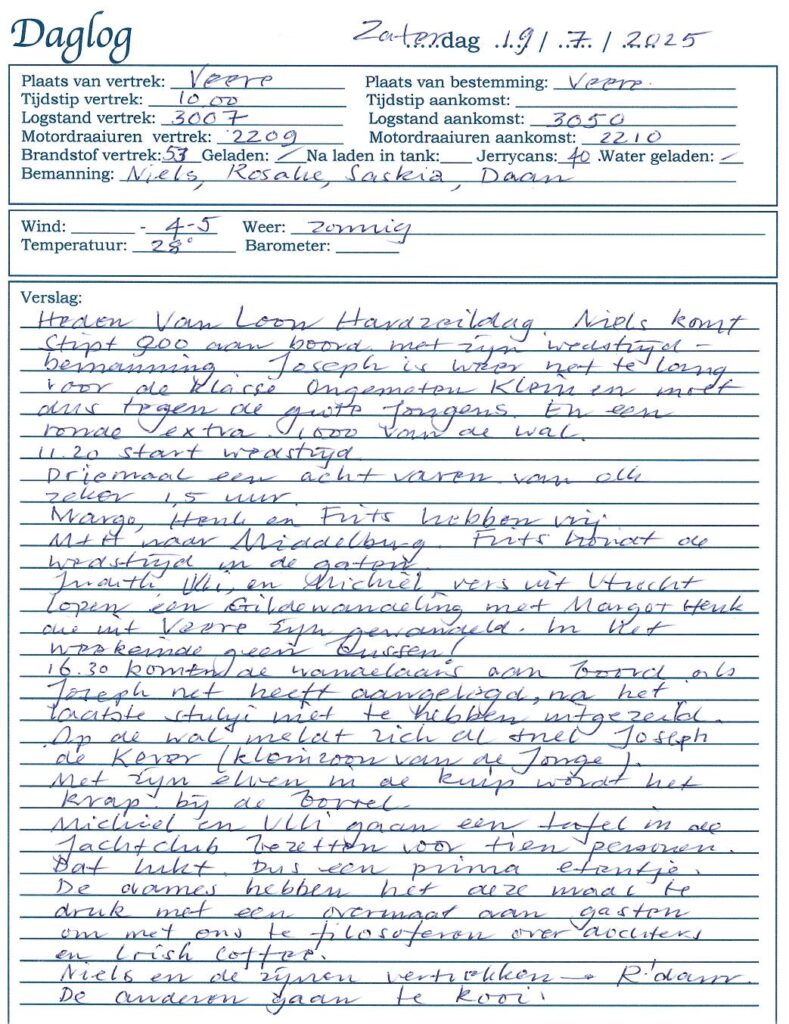 Daglog Zaterdag 19/7/2025
Plaats van vertrek: Veere Plaats van bestemming: Veere.
Tijdstip vertrek: 10.00 Tijdstip aankomst:
Logstand vertrek: 3007 Logstand aankomst: 3050
Motordraaiuren vertrek: 2209 Motordraaiuren aankomst: 2210
Brandstof vertrek: 53 Geladen: / Na laden in tank: Jerrycans: 40 .Water geladen: /
Bemanning: Niels, Rosalie, Saskia, Daan
Wind: - 4-5 Weer: zonnig
Temperatuur: 28° Barometer:
Verslag:
Heden Van Loon Hardzeildag. Niels komt
stipt 900 aan boord met zijn wedstrijd-
bemanning. Joseph is weer net te lang
voor de klasse Ongemeten Klein en moet
dus tegen de grote jongens. En een
ronde extra. 1000 van de wal.
11.20 start wedstrijd.
Driemaal een acht varen van elk
zeker 1,5 uur
Margo, Henk en Frits hebben vrij
M+H naar Middelburg. Frits houdt de
wedstrijd in de gaten.
Judith, Ulli, en Michiel vers uit Utrecht
lopen een Gildewandeling met Margot Henk
die uit Veere zijn gewandeld. In het
weekeinde geen bussen!
16.30 komen de wandelaars aan boord als
Joseph net heeft aangelegd, na het
laatste stukje niet te hebben uitgezeild.
Op de wal meldt zich al snel Joseph
de Kever (kleinzoon van de Jonge).
Met zijn elven in de kuip wordt het
krap bij de borrel.
Michiel en Ulli gaan een tafel in de
Jachtclub bezetten voor tien personen.
Dat lukt. Dus een prima etentje.
De dames hebben het deze maal te
druk met een overmaat aan gasten
om met ons te filosoferen over dochters
en Irish Coffee.
Niels en de zijnen vertrekken → R'dam.
De anderen gaan te kooi.